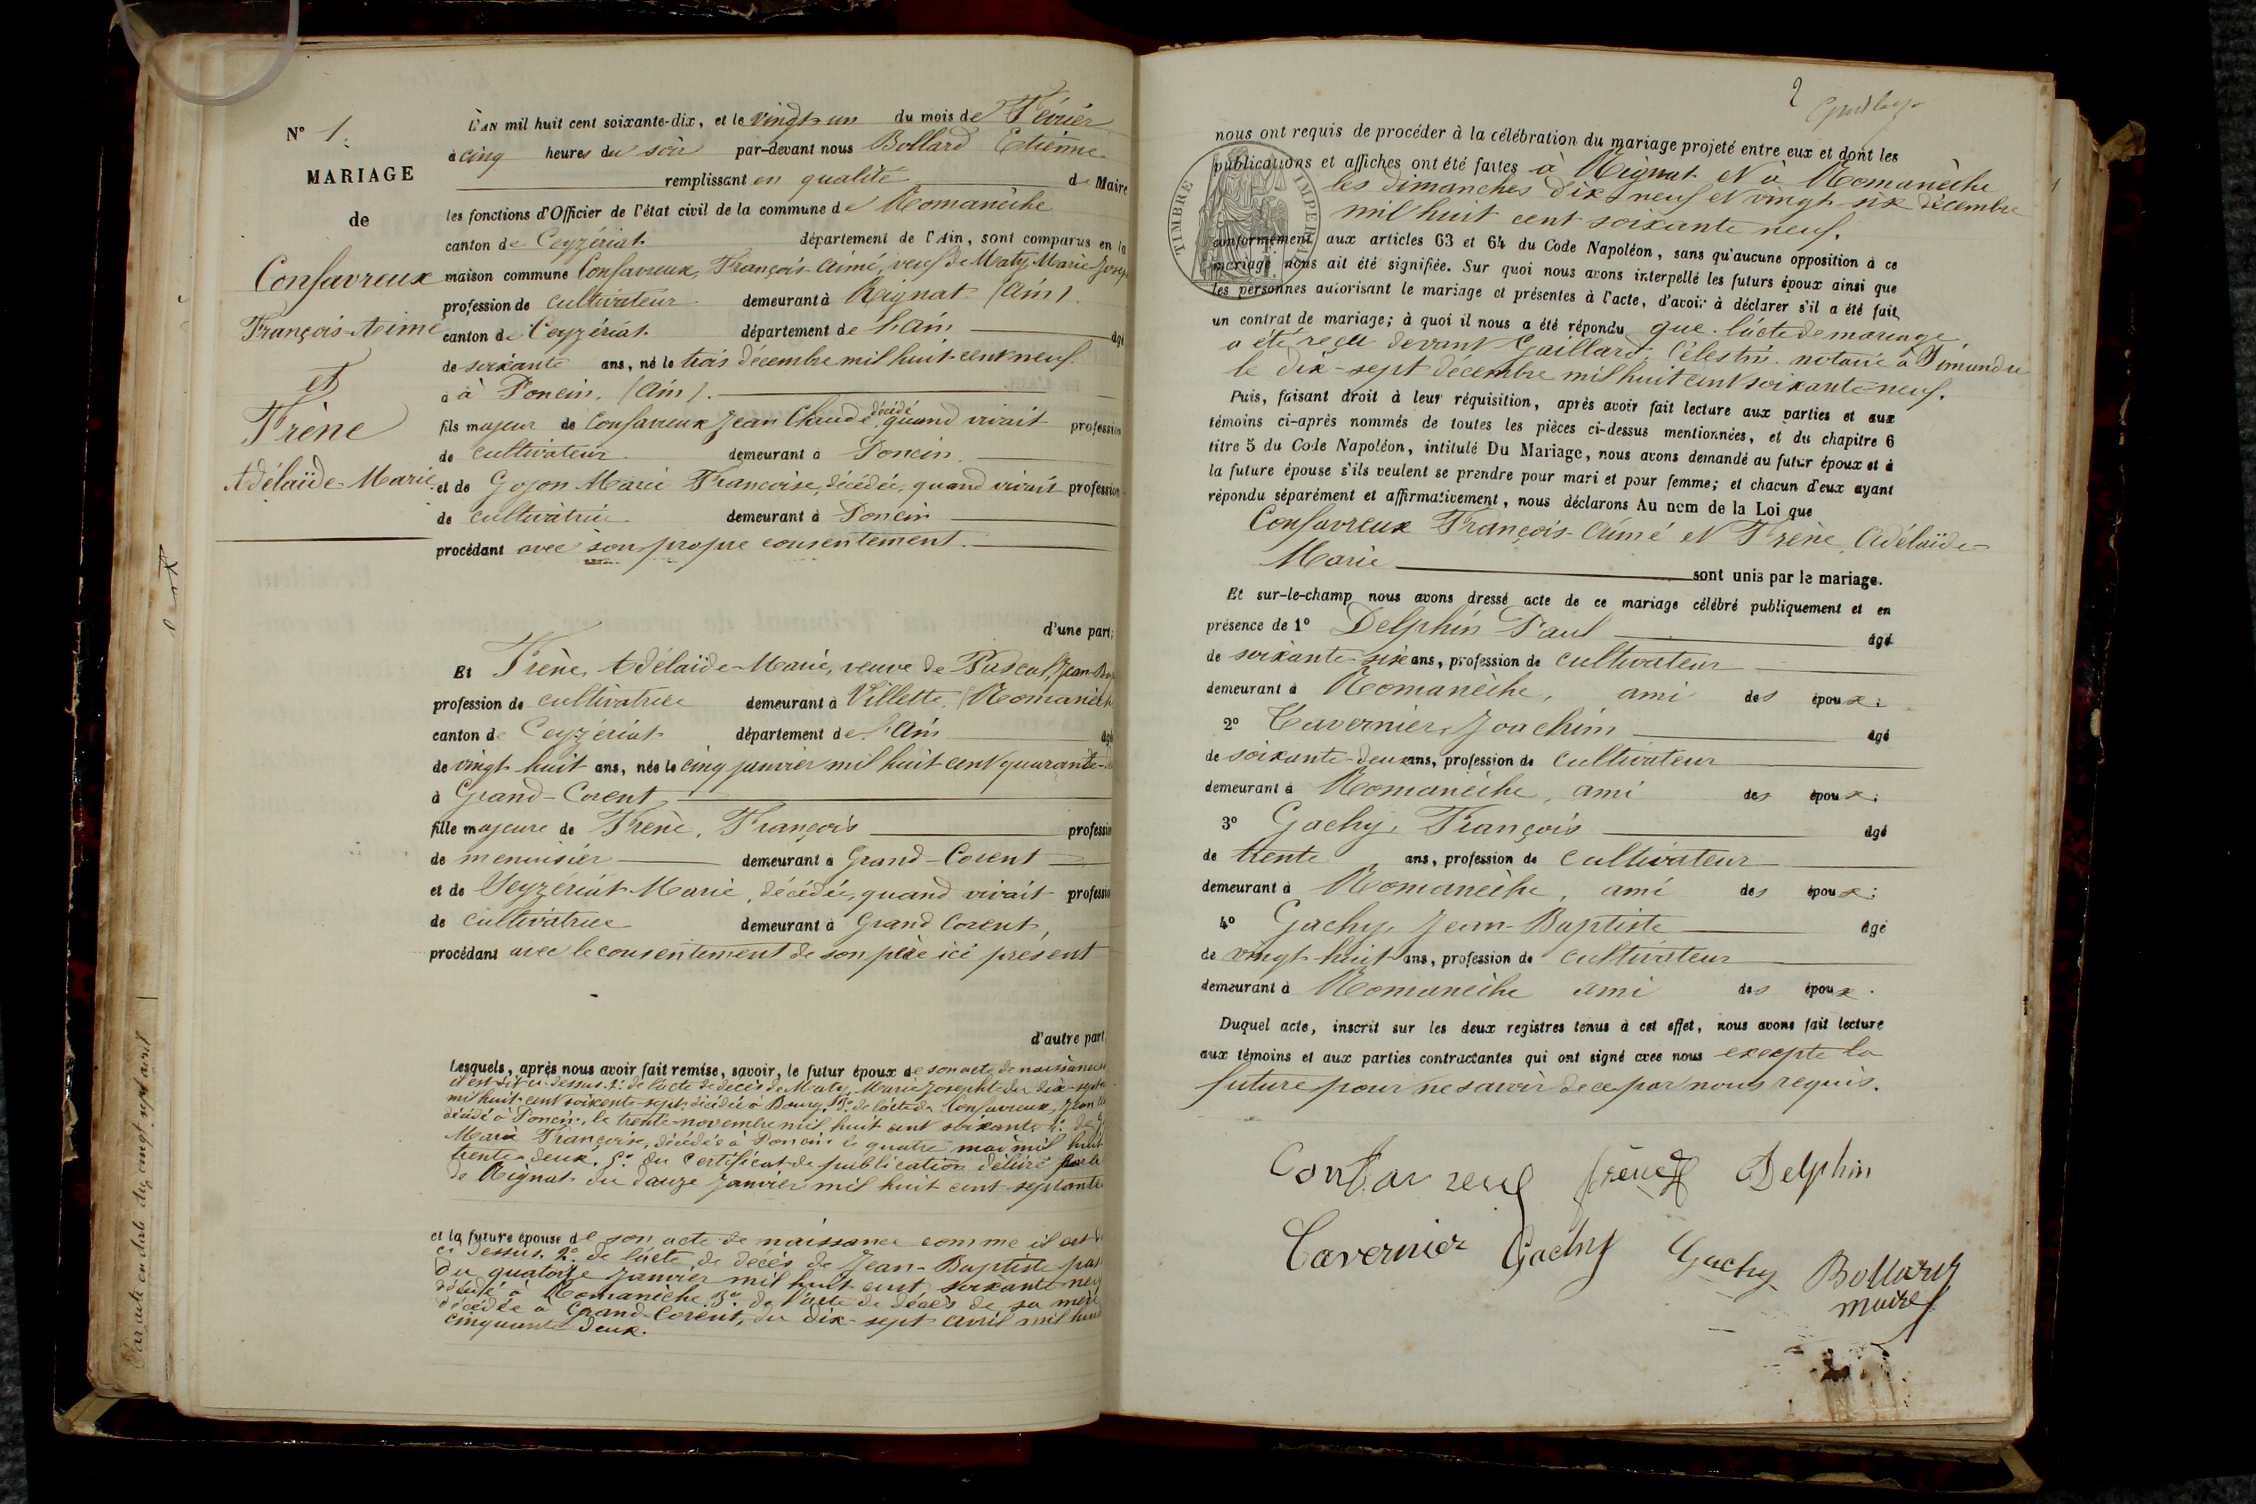 N° 1.
MARIAGE
de
Confavreux
François-Aimé
et
Frène
Adélaïde-Marie
L'AN mil huit cent soixante-dix, et le vingt-un du mois de Février
à cinq heures du soir par-devant nous Bollard Etienne
remplissant en qualité de Maire
les fonctions d'Officier de l'état civil de la commune de Romanèche
canton de Ceyzériat département de l'Ain, sont comparus en la
maison commune Confavreux, François-Aimé, veuf de Maty Marie Josep
profession de cultivateur demeurant à Rignat (Ain)
canton de Ceyzériat département de l'Ain âgé
de soixante ans, né le trois décembre mil huit cent neuf
à à Poncin, (Ain).
fils majeur de Confavreux Jean Claude décédé quand vivait profession
de cultivateur demeurant à Poncin
et de Gojon Marie Francoise, décédée, quand vivait profession
de cultivatrice demeurant à Poncin
procédant avec son propre consentement.
d'une part;
Et Frène, Adélaïde-Marie, veuve de Pascal, Jean-Bap
profession de cultivatrice demeurant à Villette, (Romanèch
canton de Ceyzériat département de l'Ain âgé
de vingt huit ans, née le cinq janvier mil huit cent quarante-
à Grand-Corent
fille majeure de Frène, François profession
de menuisier demeurant à Grand-Corent
et de Ceyzériat Marie, décédée, quand vivait profession
de cultivatrice demeurant à Grand Corent,
procédant avec le consentement de son père ici présent
d'autre part.
Lesquels, après nous avoir fait remise, savoir, le futur époux de son acte de naissance
il est dit ci-dessus 2° de l'acte de décès de Maty Marie Josephte du dix-sept
mil huit cent soixante-sept décédée à Bourg. 3° de l'acte de Confavreux, Jean
décédé à Poncin, le trente novembre mil huit cent soixante 4° de
Marie Françoise, décédée à Poncin le quatre mai mil huit
trente-deux. 5° du certificat de publication délivré par le
de Rignat du douze janvier mil huit cent septante
et la future épouse de son acte de naissance comme il est
ci dessus. 2° de l'acte de décès de Jean-Baptiste pas
du quatorze Janvier mil huit cent soixante neuf
décédé à Romanèche. 3° de l'acte de décès de sa mère
décédée à Grand-Corent, du dix-sept avril mil huit
cinquante deux.
2
nous ont requis de procéder à la célébration du mariage projeté entre eux et dont les
publications et affiches ont été faites à Rignat et à Romanèche
les dimanches dix-neuf et vingt-six décembre
mil huit cent soixante neuf.
TIMBRE IMPERIAL
conformément aux articles 63 et 64 du Code Napoléon, sans qu'aucune opposition à ce
mariage nous ait été signifiée. Sur quoi nous avons interpellé les futurs époux ainsi que
les personnes autorisant le mariage et présentes à l'acte, d'avoir à déclarer s'il a été fait
un contrat de mariage; à quoi il nous a été répondu que l'acte de mariage
a été reçu devant Gaillard, Célestin notaire à Simandre
le dix-sept décembre mil huit cent soixante-neuf.
Puis, faisant droit à leur réquisition, après avoir fait lecture aux parties et aux
témoins ci-après nommés de toutes les pièces ci-dessus mentionnées, et du chapitre 6
titre 5 du Code Napoléon, intitulé Du Mariage, nous avons demandé au futur époux et à
la future épouse s'ils veulent se prendre pour mari et pour femme; et chacun d'eux ayant
répondu séparément et affirmativement, nous déclarons Au nom de la Loi que
Confavreux François-Aimé et Frène Adélaïde-
Marie sont unis par le mariage.
Et sur-le-champ nous avons dressé acte de ce mariage célébré publiquement et en
présence de 1° Delphin Paul âgé
de soixante-six ans, profession de cultivateur
demeurant à Romanèche, ami des époux;
2° Tavernier, Joachim âgé
de soixante-deux ans, profession de cultivateur
demeurant à Romanèche, ami des époux;
3° Gachy, François âgé
de trente ans, profession de cultivateur
demeurant à Romanèche, ami des époux;
4° Gachy, Jean-Baptiste âgé
de vingt-huit ans, profession de cultivateur
demeurant à Romanèche ami des époux.
Duquel acte, inscrit sur les deux registres tenus à cet effet, nous avons fait lecture
aux témoins et aux parties contractantes qui ont signé avec nous excepté la
future pour ne savoir de ce par nous requis.
Confavreux frène Delphin
Tavernier Gachy Gachy Bollard
maire